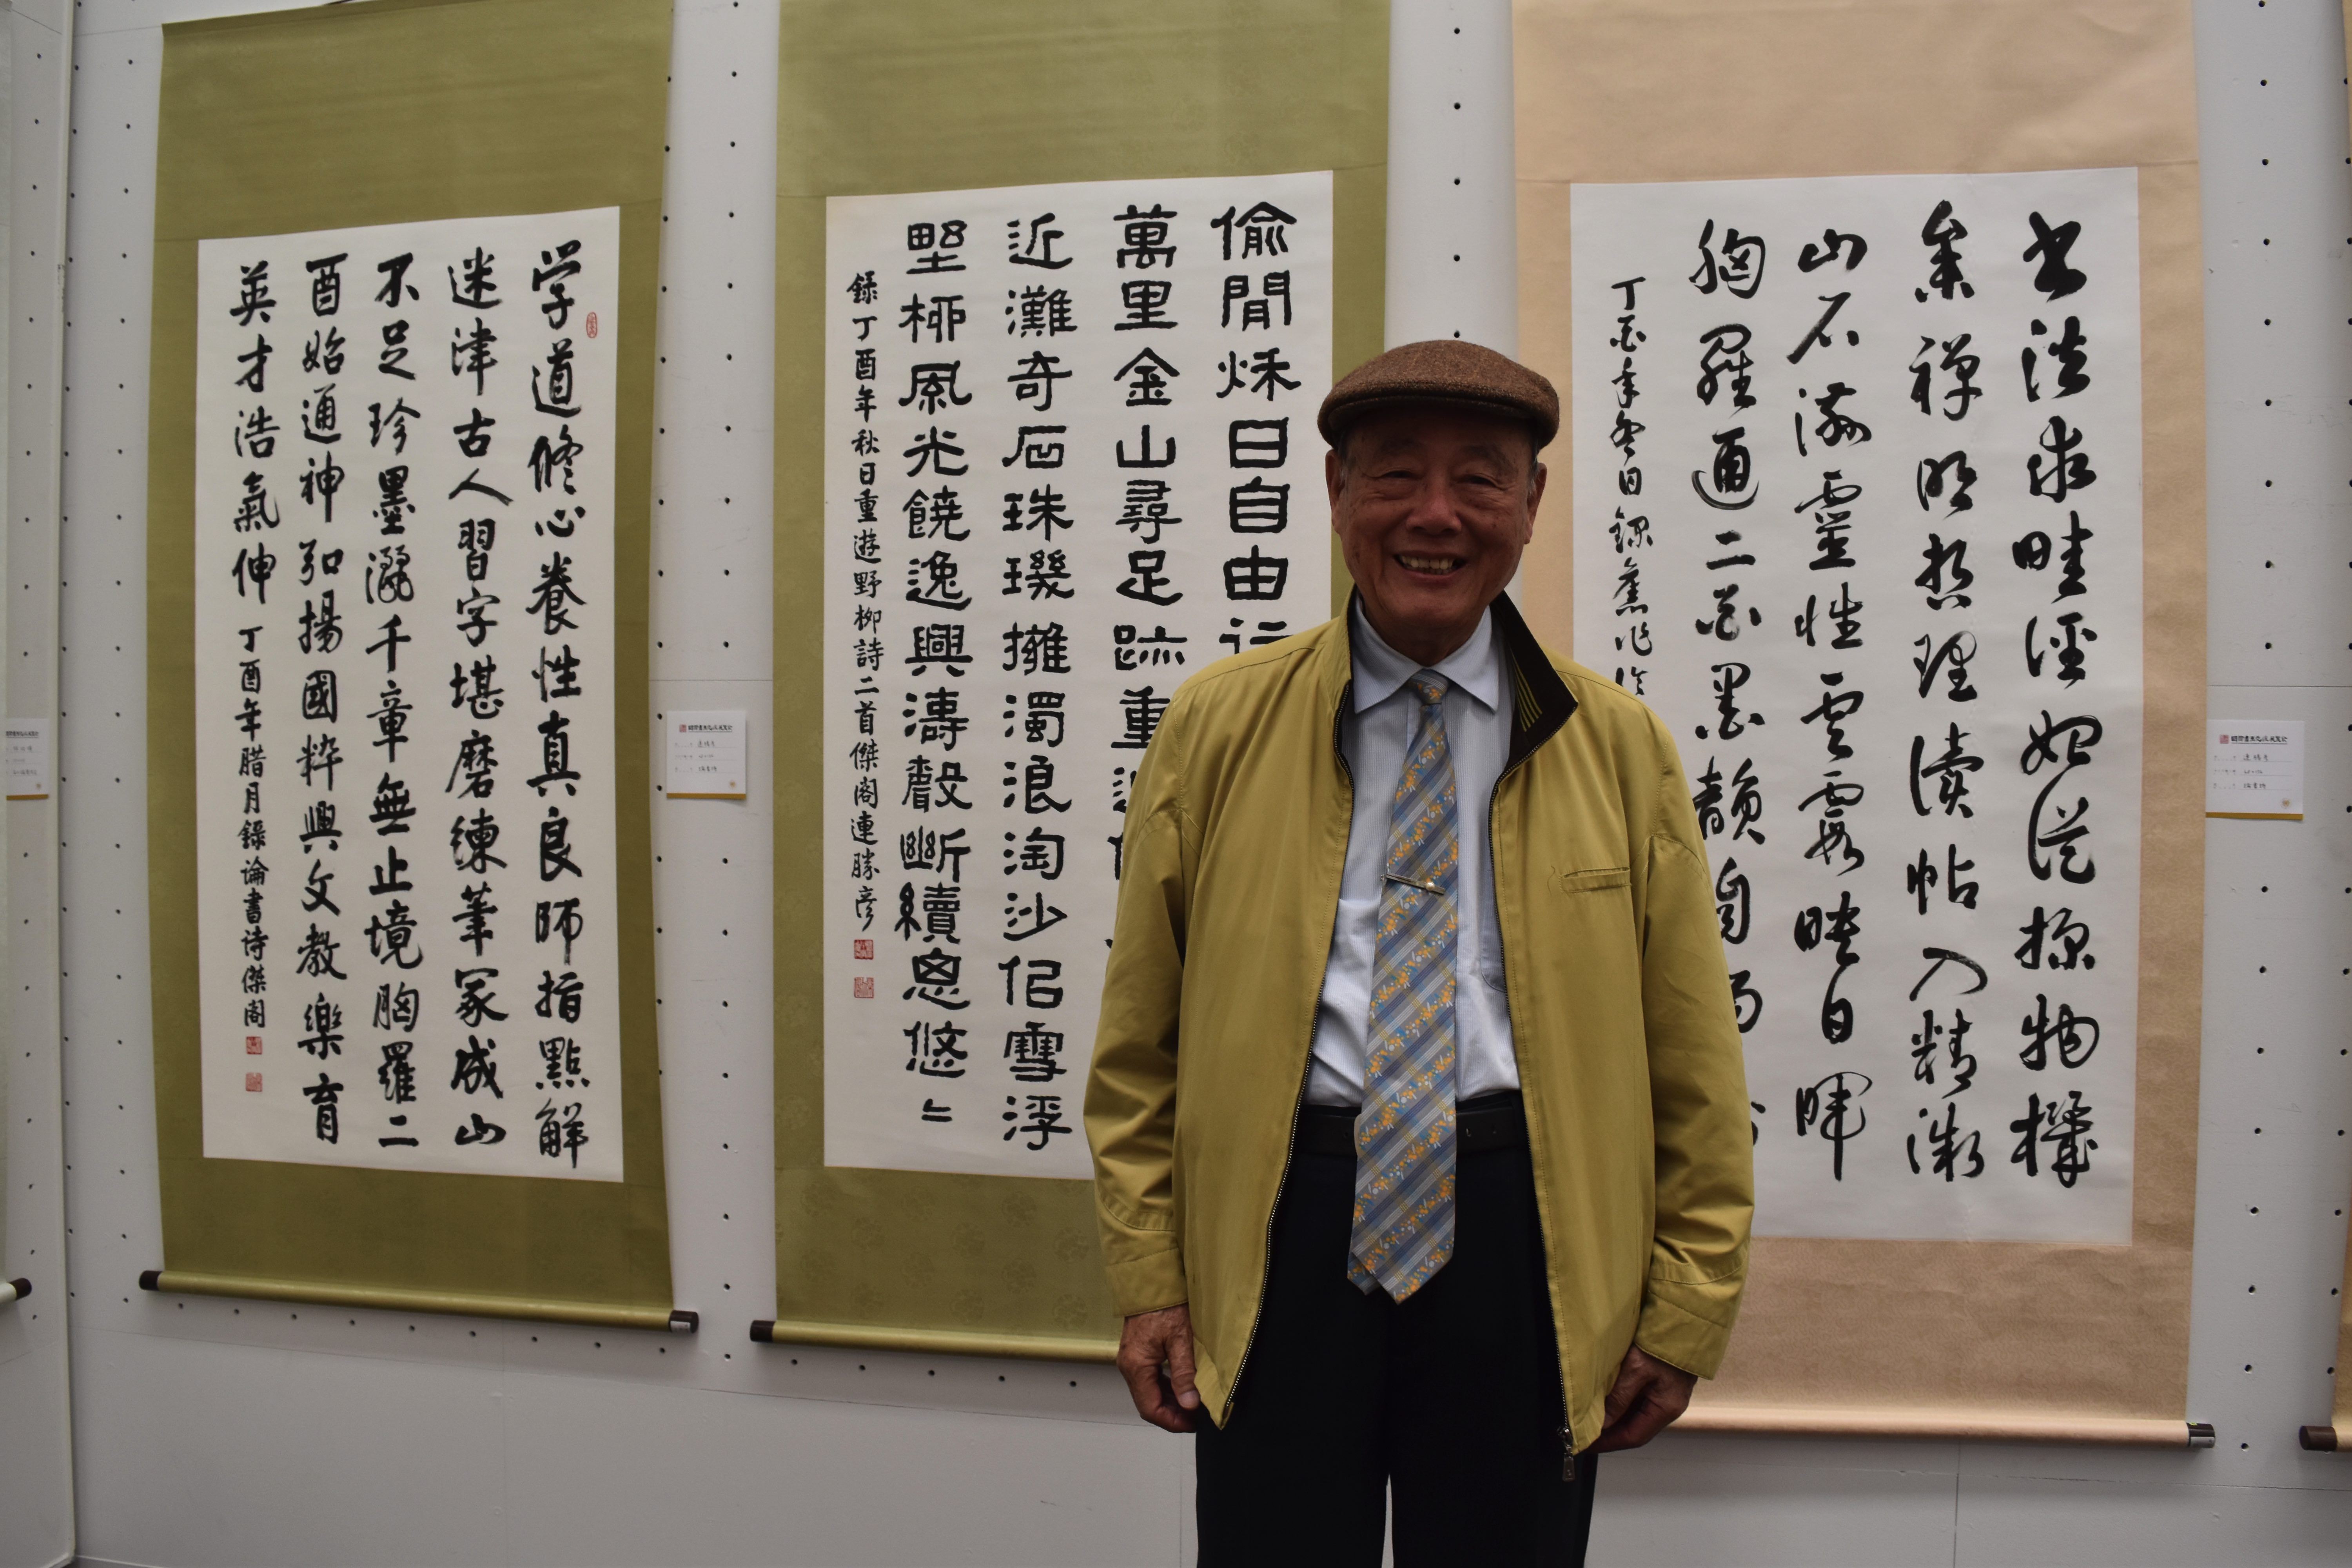 書法求畦徑妙從探物機
參禪明哲理讀帖入精微
山石滋靈性雲霞映日暉
胸羅酉二
丁酉年冬日錄舊作
偷閒秌日自由行
萬里金山尋足跡重遊
近灘奇石珠璣擁濁浪淘沙侶雪浮
野桺風光饒逸興濤聲斷續思悠〻
錄丁酉年秋日重遊野柳詩二首傑閣連勝彦
学道修心養性真良師指點解
迷津古人習字堪磨練筆冢成山
不足珍墨灑千章無止境胸羅二
酉始通神弘揚國粹興文教樂育
英才浩氣伸 丁酉年腊月錄論書诗傑閣